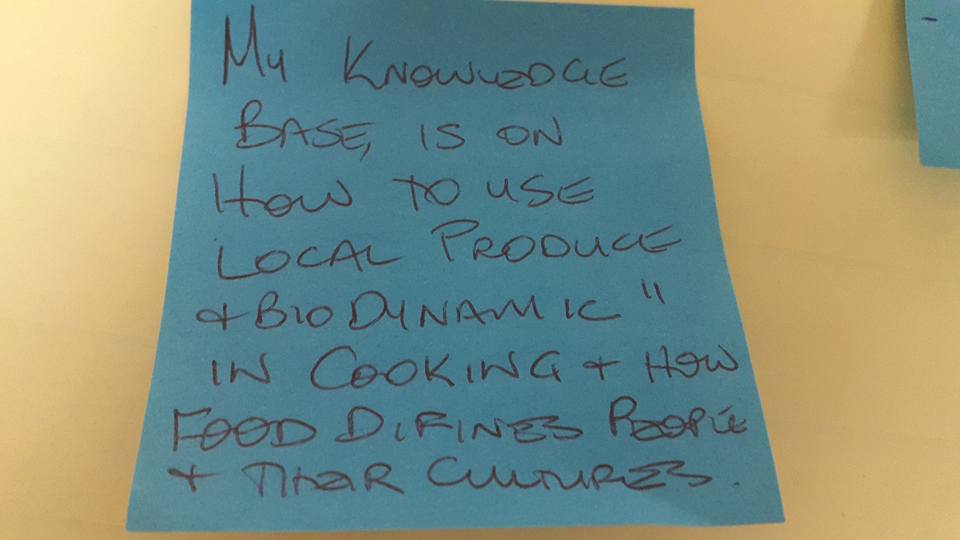 My KNOWLEDGE
BASE, IS ON
HOW TO USE
LOCAL PRODUCE
& BIODYNAMIC "
IN COOKING & HOW
FOOD DIFINES PEOPLE
& THEIR CULTURES.